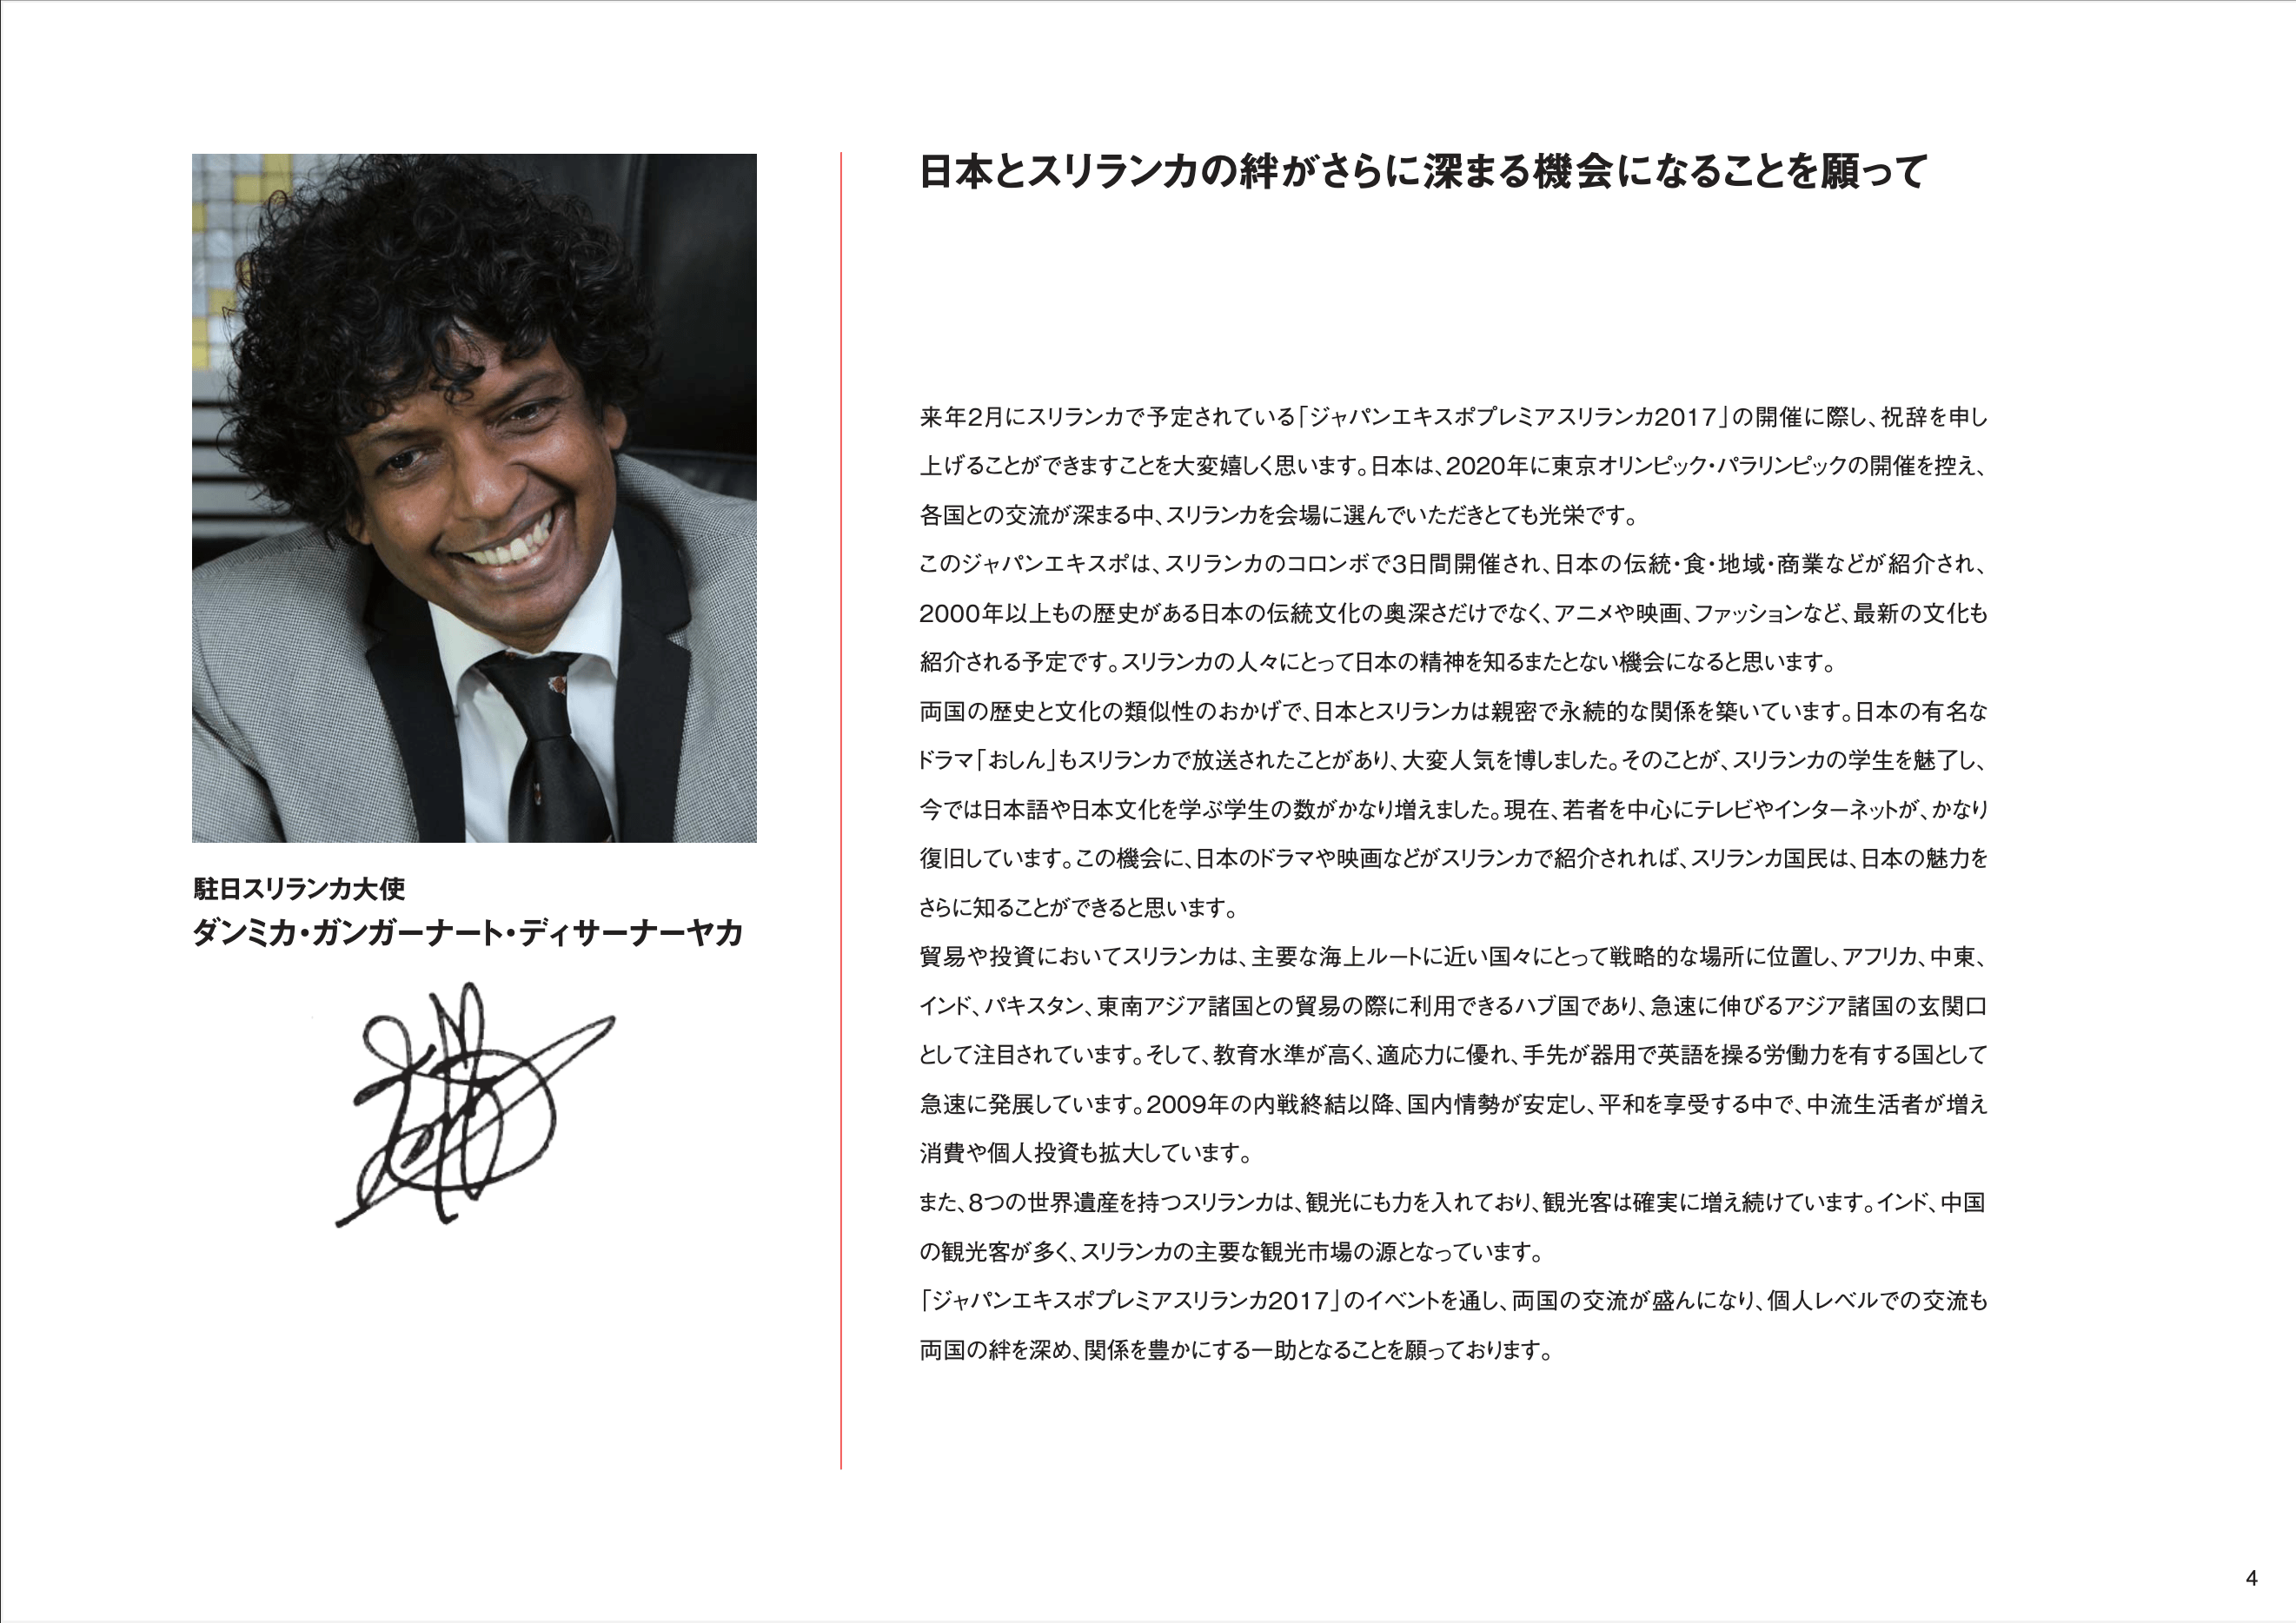 日本とスリランカの絆がさらに深まる機会になることを願って
来年2月にスリランカで予定されている「ジャパンエキスポプレミアスリランカ2017」の開催に際し、祝辞を申し
上げることができますことを大変嬉しく思います。日本は、2020年に東京オリンピック・パラリンピックの開催を控え、
各国との交流が深まる中、スリランカを会場に選んでいただきとても光栄です。
このジャパンエキスポは、スリランカのコロンボで3日間開催され、日本の伝統・食・地域・商業などが紹介され、
2000年以上もの歴史がある日本の伝統文化の奥深さだけでなく、アニメや映画、ファッションなど、最新の文化も
紹介される予定です。スリランカの人々にとって日本の精神を知るまたとない機会になると思います。
両国の歴史と文化の類似性のおかげで、日本とスリランカは親密で永続的な関係を築いています。日本の有名な
ドラマ「おしん」もスリランカで放送されたことがあり、大変人気を博しました。そのことが、スリランカの学生を魅了し、
今では日本語や日本文化を学ぶ学生の数がかなり増えました。現在、若者を中心にテレビやインターネットが、かなり
復旧しています。この機会に、日本のドラマや映画などがスリランカで紹介されれば、スリランカ国民は、日本の魅力を
さらに知ることができると思います。
貿易や投資においてスリランカは、主要な海上ルートに近い国々にとって戦略的な場所に位置し、アフリカ、中東、
インド、パキスタン、東南アジア諸国との貿易の際に利用できるハブ国であり、急速に伸びるアジア諸国の玄関口
として注目されています。そして、教育水準が高く、適応力に優れ、手先が器用で英語を操る労働力を有する国として
急速に発展しています。2009年の内戦終結以降、国内情勢が安定し、平和を享受する中で、中流生活者が増え
消費や個人投資も拡大しています。
また、8つの世界遺産を持つスリランカは、観光にも力を入れており、観光客は確実に増え続けています。インド、中国
の観光客が多く、スリランカの主要な観光市場の源となっています。
「ジャパンエキスポプレミアスリランカ2017」のイベントを通し、両国の交流が盛んになり、個人レベルでの交流も
両国の絆を深め、関係を豊かにする一助となることを願っております。
駐日スリランカ大使
ダンミカ・ガンガーナート・ディサーナーヤカ
4